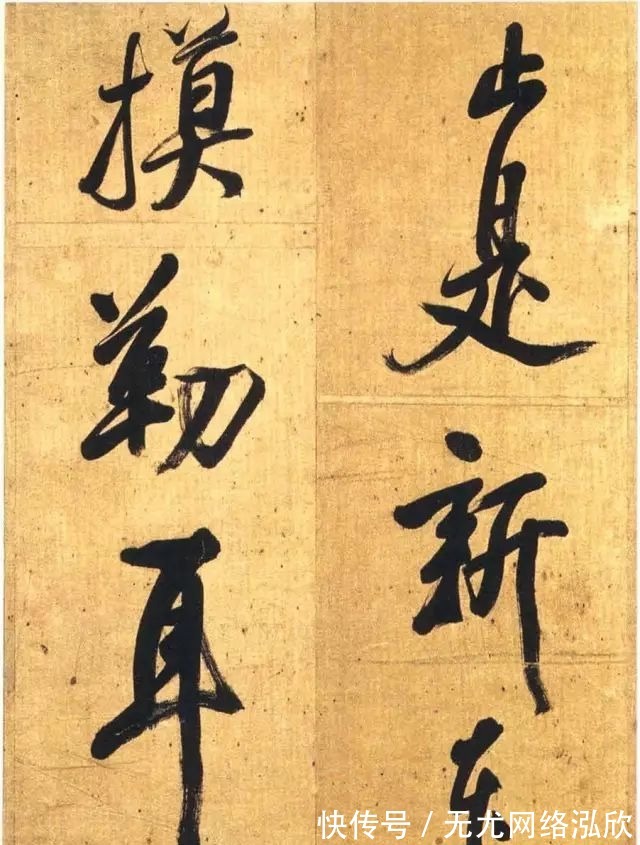 止是新
摸勒耳
快传号 / 无尤网络泓欣